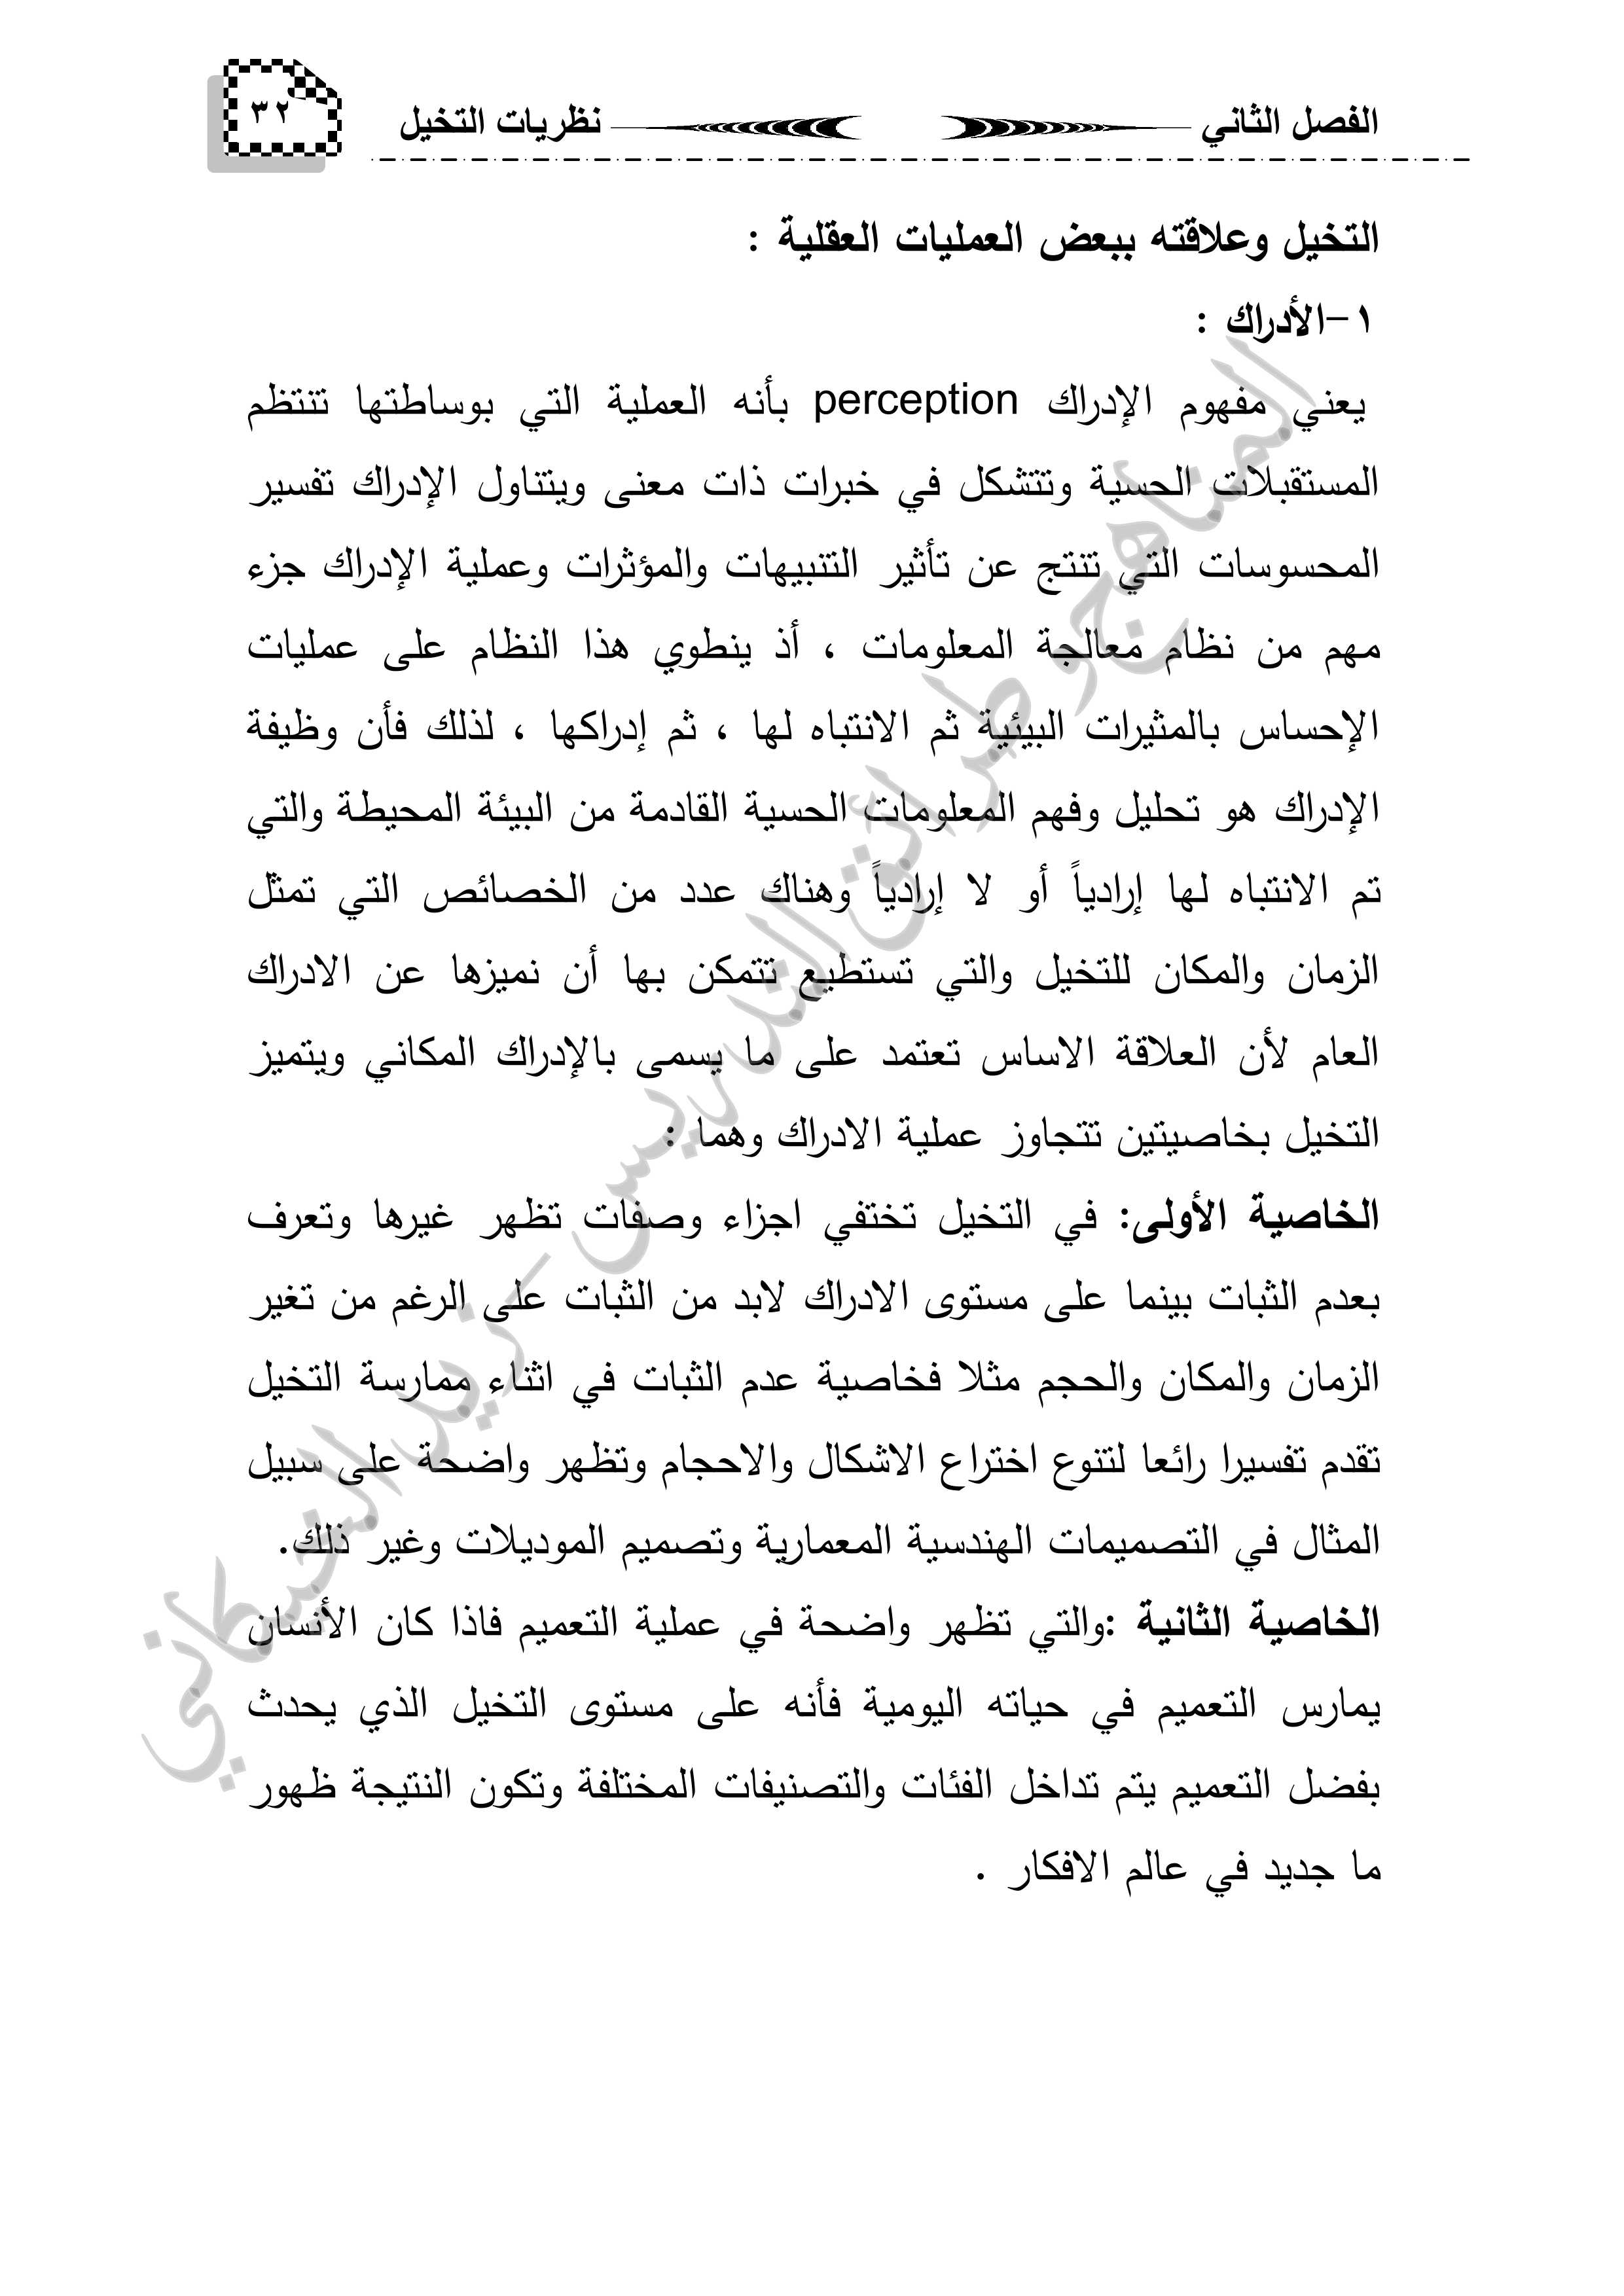 الفصل الثاني نظريات التخيل ٣٢
التخيل وعلاقته ببعض العمليات العقلية :
١-الأدراك :
يعني مفهوم الإدراك perception بأنه العملية التي بوساطتها تنتظم
المستقبلات الحسية وتتشكل في خبرات ذات معنى ويتناول الإدراك تفسير
المحسوسات التي تنتج عن تأثير التنبيهات والمؤثرات وعملية الإدراك جزء
مهم من نظام معالجة المعلومات ، أذ ينطوي هذا النظام على عمليات
الإحساس بالمثيرات البيئية ثم الانتباه لها ، ثم إدراكها ، لذلك فأن وظيفة
الإدراك هو تحليل وفهم المعلومات الحسية القادمة من البيئة المحيطة والتي
تم الانتباه لها إرادياً أو لا إرادياً وهناك عدد من الخصائص التي تمثل
الزمان والمكان للتخيل والتي تستطيع تتمكن بها أن نميزها عن الادراك
العام لأن العلاقة الاساس تعتمد على ما يسمى بالإدراك المكاني ويتميز
التخيل بخاصيتين تتجاوز عملية الادراك وهما :
الخاصية الأولى: في التخيل تختفي اجزاء وصفات تظهر غيرها وتعرف
بعدم الثبات بينما على مستوى الادراك لابد من الثبات على الرغم من تغير
الزمان والمكان والحجم مثلا فخاصية عدم الثبات في اثناء ممارسة التخيل
تقدم تفسيرا رائعا لتنوع اختراع الاشكال والاحجام وتظهر واضحة على سبيل
المثال في التصميمات الهندسية المعمارية وتصميم الموديلات وغير ذلك.
الخاصية الثانية :والتي تظهر واضحة في عملية التعميم فاذا كان الأنسان
يمارس التعميم في حياته اليومية فأنه على مستوى التخيل الذي يحدث
بفضل التعميم يتم تداخل الفئات والتصنيفات المختلفة وتكون النتيجة ظهور
ما جديد في عالم الافكار .
المناهج وطرائق التدريس - زيد الخيكاني